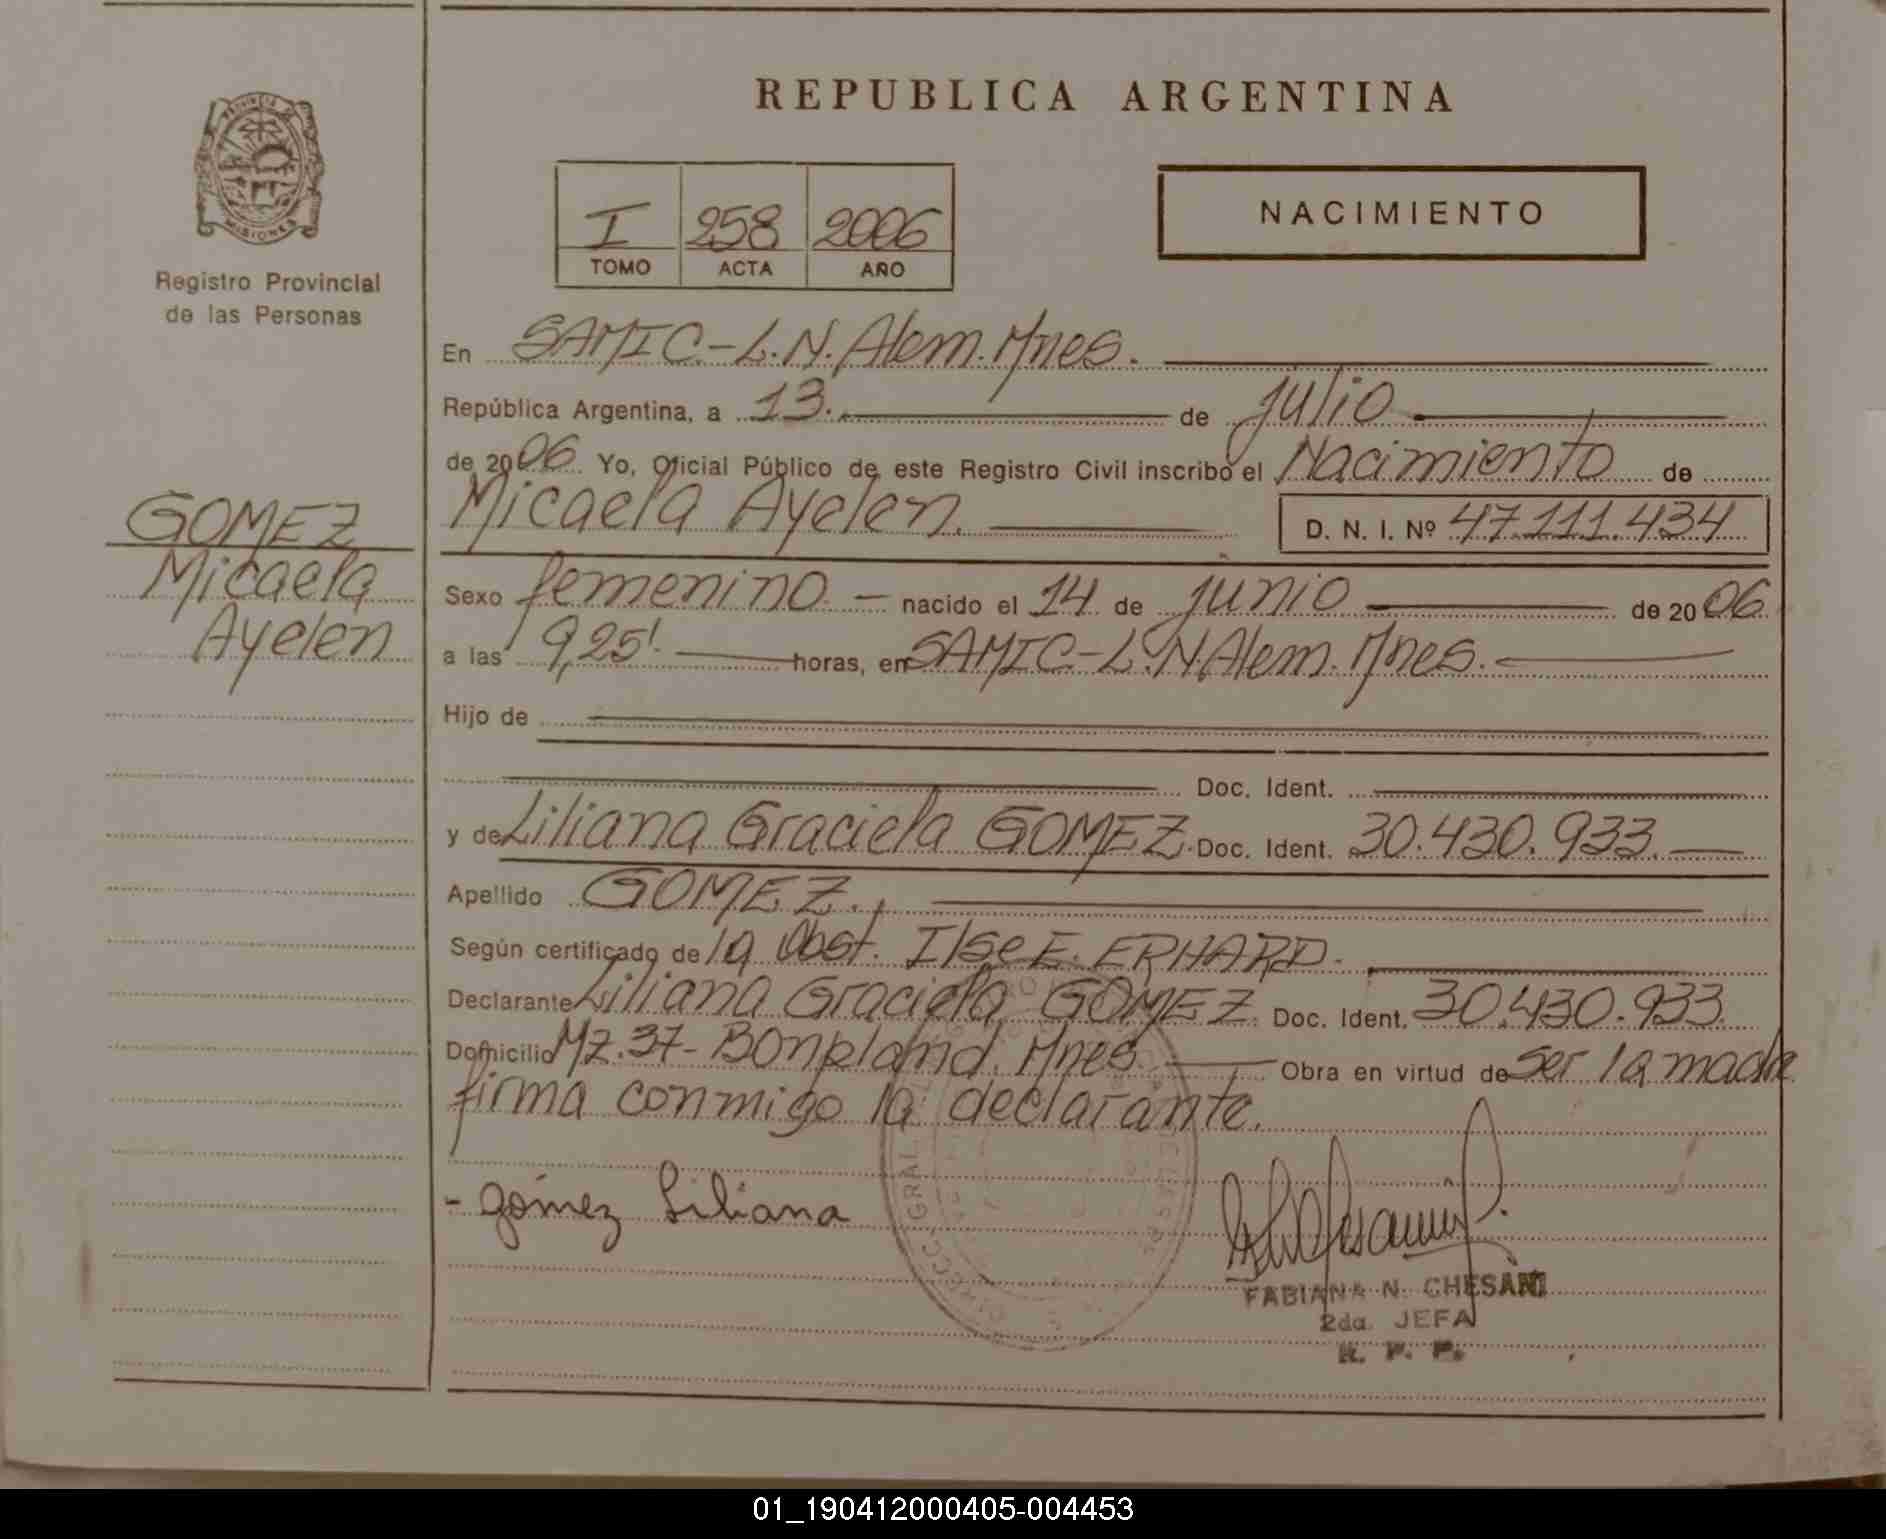 REPUBLICA ARGENTINA
PROVINCIA DE
MISIONES
Registro Provincial
de las Personas
I 258 2006
TOMO ACTA AÑO
NACIMIENTO
GOMEZ
Micaela
Ayelen
En SAMIC-L.N.Alem.Mnes.
República Argentina, a 13. de julio
de 2006 Yo, Oficial Público de este Registro Civil inscribo el Nacimiento de
Micaela Ayelen. D. N. I. Nº 47.111.434
Sexo femenino - nacido el 14 de junio de 2006
a las 9,25'. horas, en SAMIC-L.N.Alem.Mnes.
Hijo de
Doc. Ident.
y de Liliana Graciela GOMEZ. Doc. Ident. 30.430.933.
Apellido GOMEZ.
Según certificado de la Obst. Ilse E. ERHARD.
Declarante Liliana Graciela GOMEZ. Doc. Ident. 30.430.933.
Domicilio Mz.37-Bonpland. Mnes. Obra en virtud de ser la madre
firma conmigo la declarante.
- Gómez Liliana
DIRECC. GRAL.
FABIANA N. CHESANI
2da. JEFA
R. P. P.
01_190412000405-004453